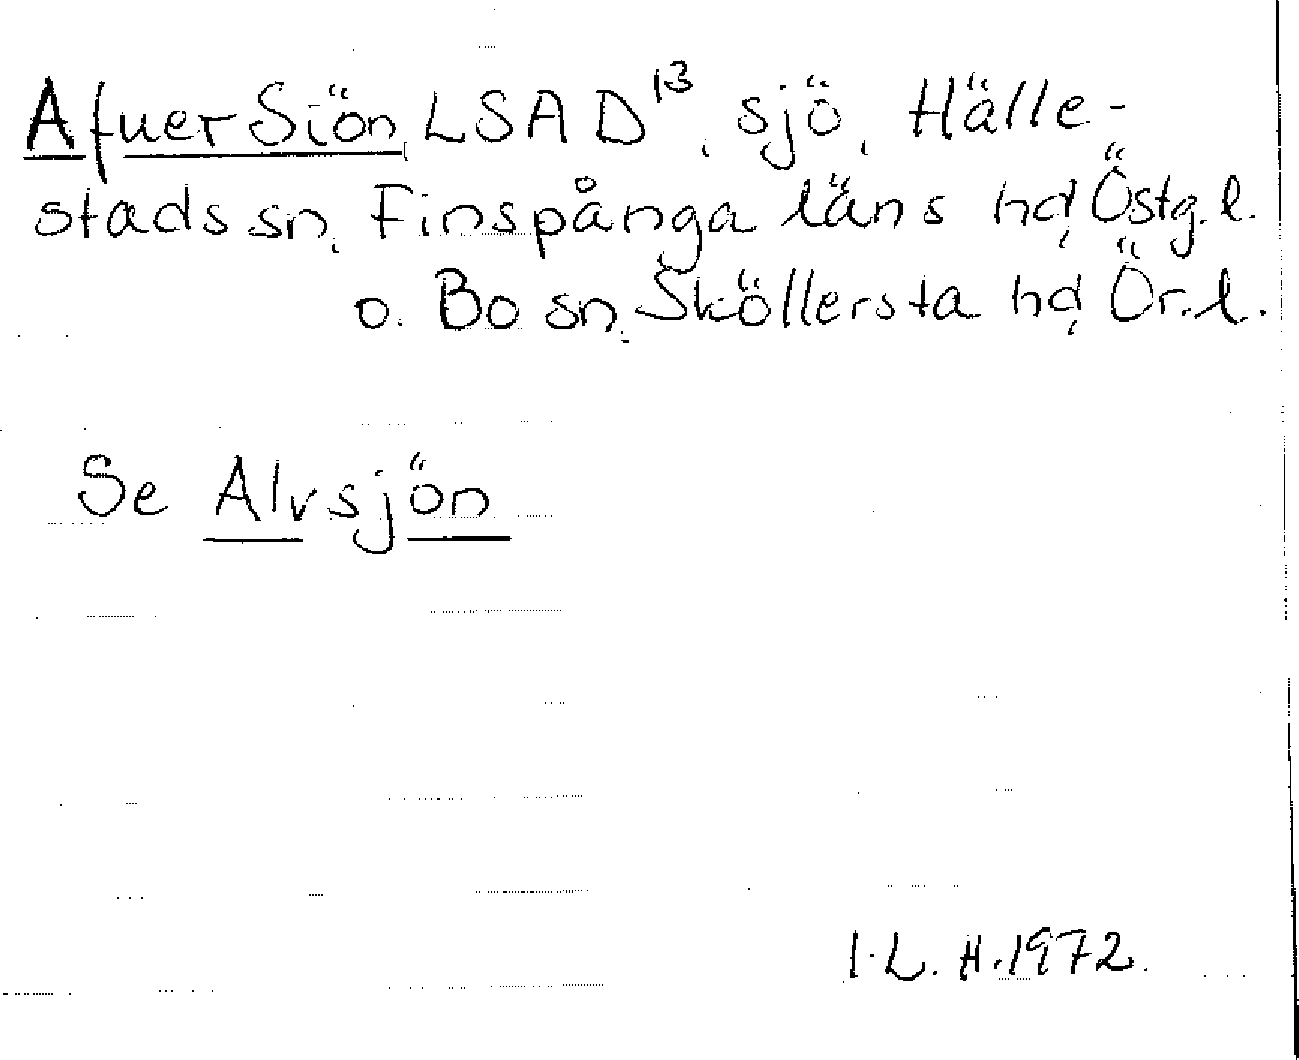 Afuer Siön, LSA D13, sjö, Hälle-
stads sn, Finspånga läns hd, Östg.l.
o. Bo sn, Sköllersta hd, Ör.l.
Se Alvsjön
I.L.H.1972.